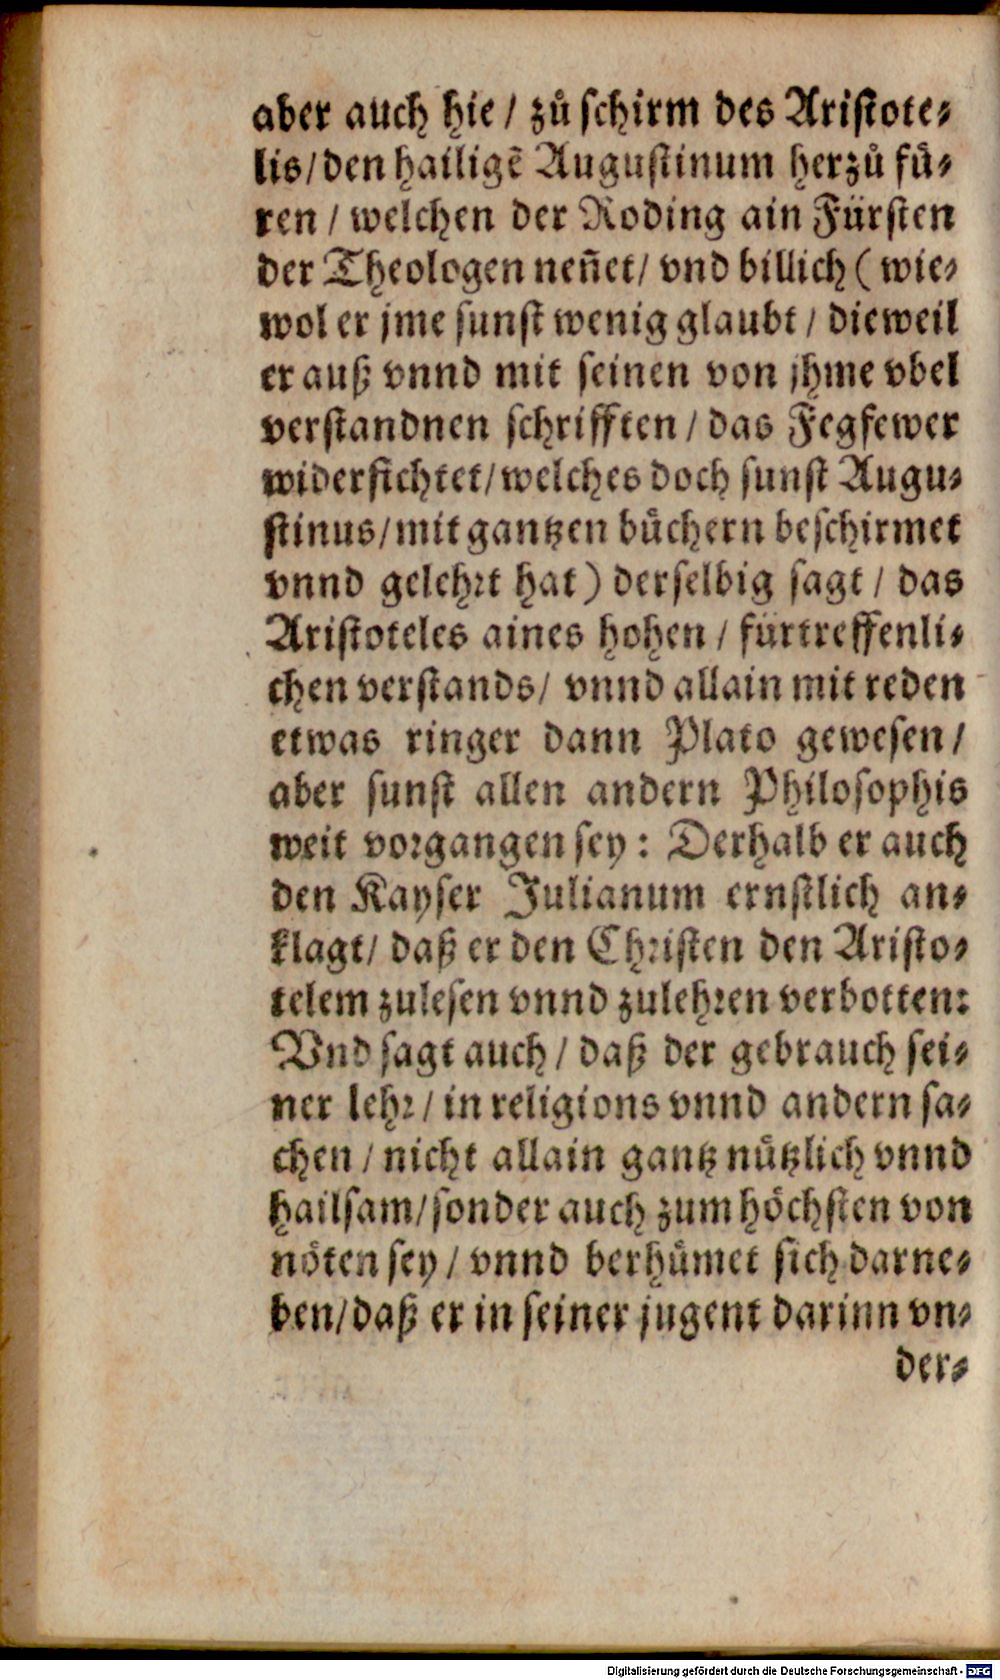 aber auch hie / zů schirm des Aristote⸗
lis / den hailigẽ Augustinum herzů fü⸗
ren / welchen der Roding ain Fürsten
der Theologen nen̄et / vnd billich ( wie⸗
wol er jme sunst wenig glaubt / dieweil
er auß vnnd mit seinen von jhme vbel
verstandnen schrifften / das Fegfewer
widerfichtet / welches doch sunst Augu⸗
stinus / mit gantzen bůchern beschirmet
vnnd gelehrt hat ) derselbig sagt / das
Aristoteles aines hohen / fürtreffenli⸗
chen verstands / vnnd allain mit reden
etwas ringer dann Plato gewesen /
aber sunst allen andern Philosophis
weit vorgangen sey : Derhalb er auch
den Kayser Julianum ernstlich an⸗
klagt / daß er den Christen den Aristo⸗
telem zulesen vnnd zulehren verbotten:
Vnd sagt auch / daß der gebrauch sei⸗
ner lehr / in religions vnnd andern sa⸗
chen / nicht allain gantz nützlich vnnd
hailsam / sonder auch zum höchsten von
nöten sey / vnnd berhůmet sich darne⸗
ben / daß er in seiner jugent darinn vn⸗
der⸗
Digitalisierung gefördert durch die Deutsche Forschungsgemeinschaft - DFG